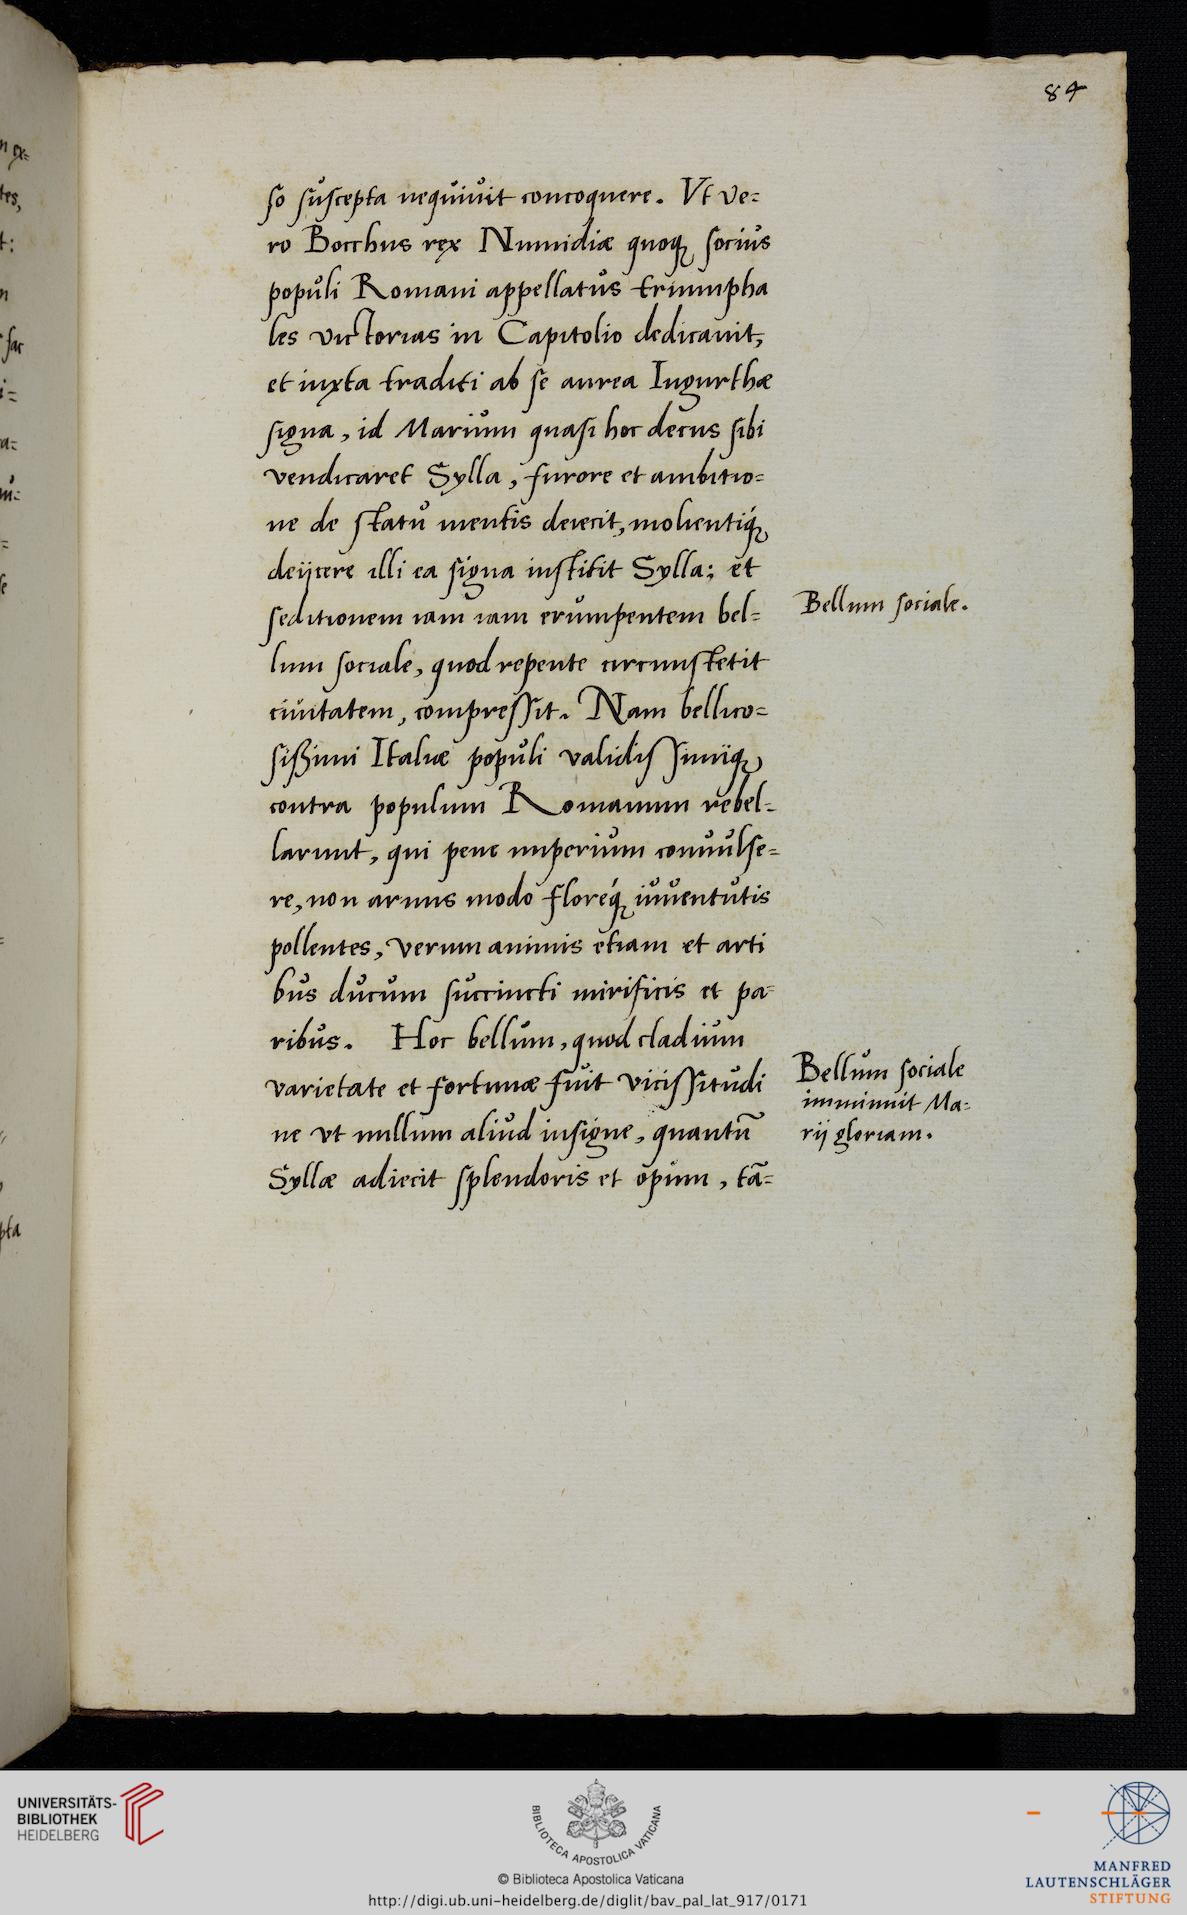 84
so suscepta nequiuit concoquere. Vt ve=
ro Bocchus rex Numidiæ quoq; socius
populi Romani appellatus triumpha
les victorias in Capitolio dedicauit,
et iuxta traditi ab se aurea Iugurthæ
signa, id Marium quasi hoc decus sibi
vendicaret Sylla, furore et ambitio=
ne de statu mentis deiecit, molientiq́;
deijcere illi ea signa institit Sylla; et
seditionem iam iam erumpentem bel=
Bellum sociale.
lum sociale, quod repente circumstetit
ciuitatem, compressit. Nam bellico=
sißimi Italiæ populi validissimiq;
contra populum Romanum rebel=
larunt, qui pene imperium conuulse=
re, non armis modo floreq́; iuuentutis
pollentes, verum animis etiam et arti
bus ducum succincti mirificis et pa=
ribus. Hoc bellum, quod cladium
varietate et fortunæ fuit vicissitudi
ne vt nullum aliud insigne, quantũ
Syllæ adiecit splendoris et opum, tã=
Bellum sociale
imminuit Ma=
rij gloriam.
UNIVERSITÄTS-
BIBLIOTHEK
HEIDELBERG
BIBLIOTECA APOSTOLICA VATICANA
© Biblioteca Apostolica Vaticana
http://digi.ub.uni-heidelberg.de/diglit/bav_pal_lat_917/0171
MANFRED
LAUTENSCHLÄGER
STIFTUNG